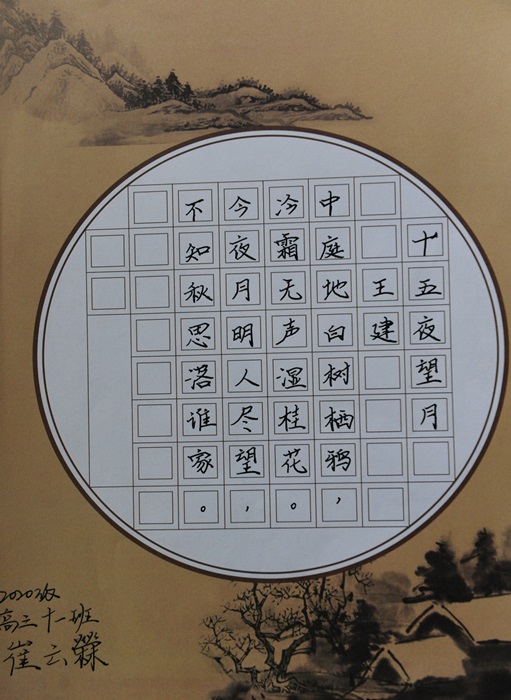 十五夜望月
王建
中庭地白树栖鸦，
冷霜无声湿桂花。
今夜月明人尽望，
不知秋思落谁家。
2020级
高三十一班
崔云